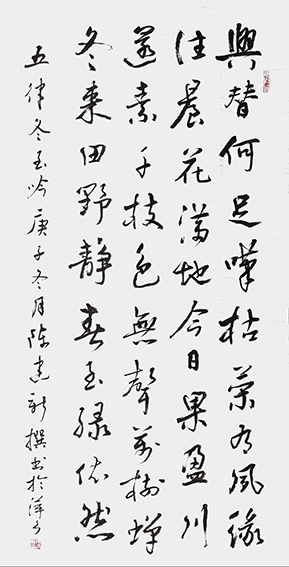 興替何足嘆枯榮有風緣
往晨花滿地今日果盈川
還素千枝色無聲萬樹蟬
冬來田野靜春至緑依然
五律冬至吟庚子冬月陳新撰書於萍乡